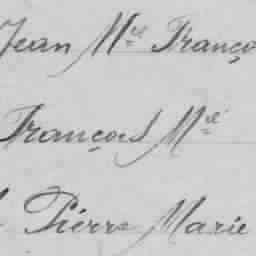 Jean M.el Franço
François M.el
Pierre Marie